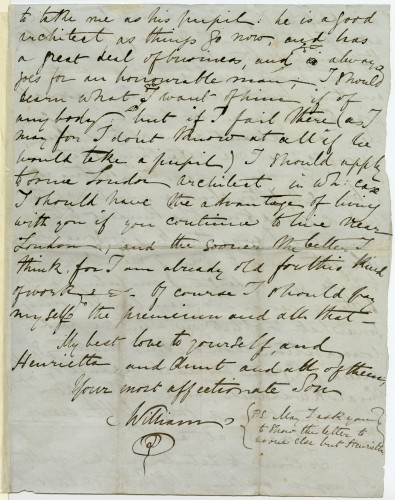 to take me as his pupil: he is a good
architect as things go now, and has
a great deal of business, and is always
goes for an honourable man; I should
learn what I want of him if of
anybody; but if I fail there (as I
may for I dont know at all if he
would take a pupil) I should apply
to some London architect, in wh: case
I should have the advantage of living
with you if you continue to live near
London, and the sooner the better I
think, for I am already old for this kind
of work. Of course I should pay
myself the premium and all that—
My best love to yourself, and
Henrietta and Aunt and all of them
Your most affectionate Son
William
PS May I ask you
to show this letter to
no one else but Henrietta